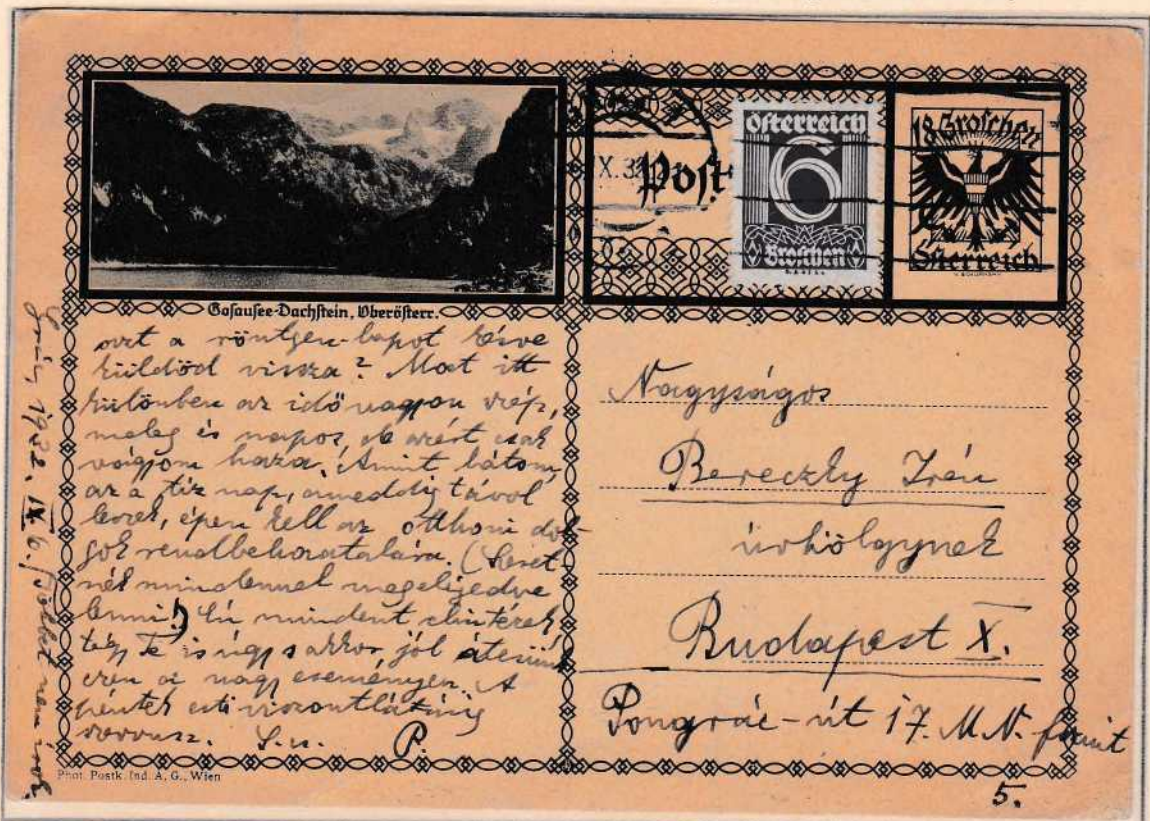 18 Groschen
Österreich
Österreich
6
Groschen
Post
X. 3
Gosausee-Dachstein, Oberösterr.
azt a röntgen-lapot kézve
küldöd vissza? Most itt
különben az idő nagyon szép,
meleg és napos, de azért csak
vágyom haza. Amint látom,
az a tíz nap, ameddig távol
leszek, épen kell az otthoni dol-
gok rendbehozatalára. (Szeret-
nék mindennel megelégedve
lenni!) Én mindent elintézek
légy Te is úgy s akkor jól átesünk
ezen a nagy eseményen. A
péntek esti viszontlátásig
servusz. P.
1932. IX 6. többet nem írok.
Nagyságos
Bereczky Irén
úrhölgynek
Budapest X.
Pongrác-út 17. M.N.
5.
Phot. Postk. Ind. A. G., Wien